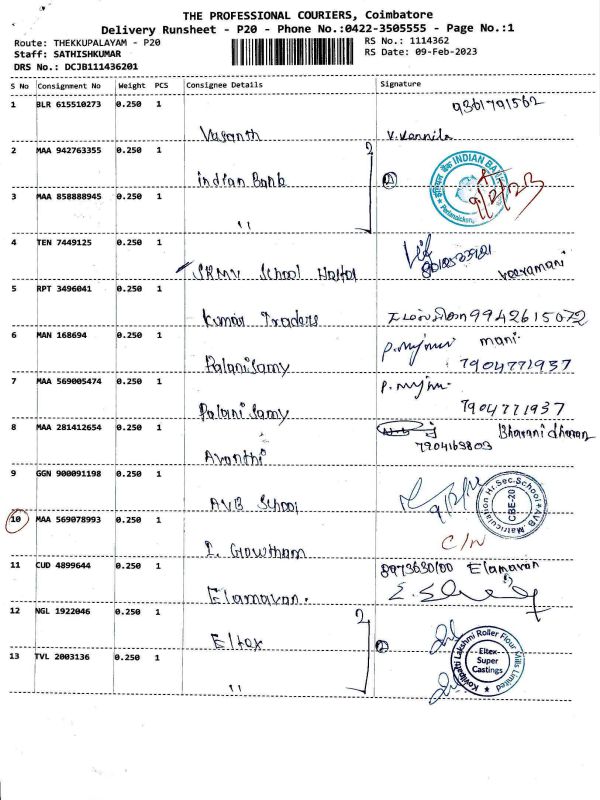 THE PROFESSIONAL COURIERS, Coimbatore
Delivery Runsheet - P20 - Phone No.:0422-3505555 - Page No.:1
Route: THEKKUPALAYAM - P20 RS No.: 1114362
Staff: SATHISHKUMAR RS Date: 09-Feb-2023
DRS No.: DCJB111436201
S No Consignment No Weight PCS Consignee Details Signature
1 BLR 615510273 0.250 1 9361791562
Vasanth V. Vennila
2 MAA 942763355 0.250 1 2
indian Bank INDIAN BA
3 MAA 858888945 0.250 1 9/2/23
"
4 TEN 7449125 0.250 1
SRMV School Hostol veeramani
5 RPT 3496041 0.250 1
Kumar Traders 9942615072
6 MAN 168694 0.250 1 mani
Palanisamy 7904771937
7 MAA 569005474 0.250 1
Palanisamy 7904771937
8 MAA 281412654 0.250 1 Bharanidharan
Avanthi 7904163803
9 GGN 900091198 0.250 1
AVB School AVB. Matriculation Hr.Sec.School CBE-20
10 MAA 569078993 0.250 1 C/N
I. Gowtham
11 CUD 4899644 0.250 1 Elamavan
Elamavan.
12 NGL 1922046 0.250 1 2
Eltex
13 TVL 2003136 0.250 1 Kovilpatti Lakshmi Roller Flour Mills Limited
Eltex
Super
Castings
"